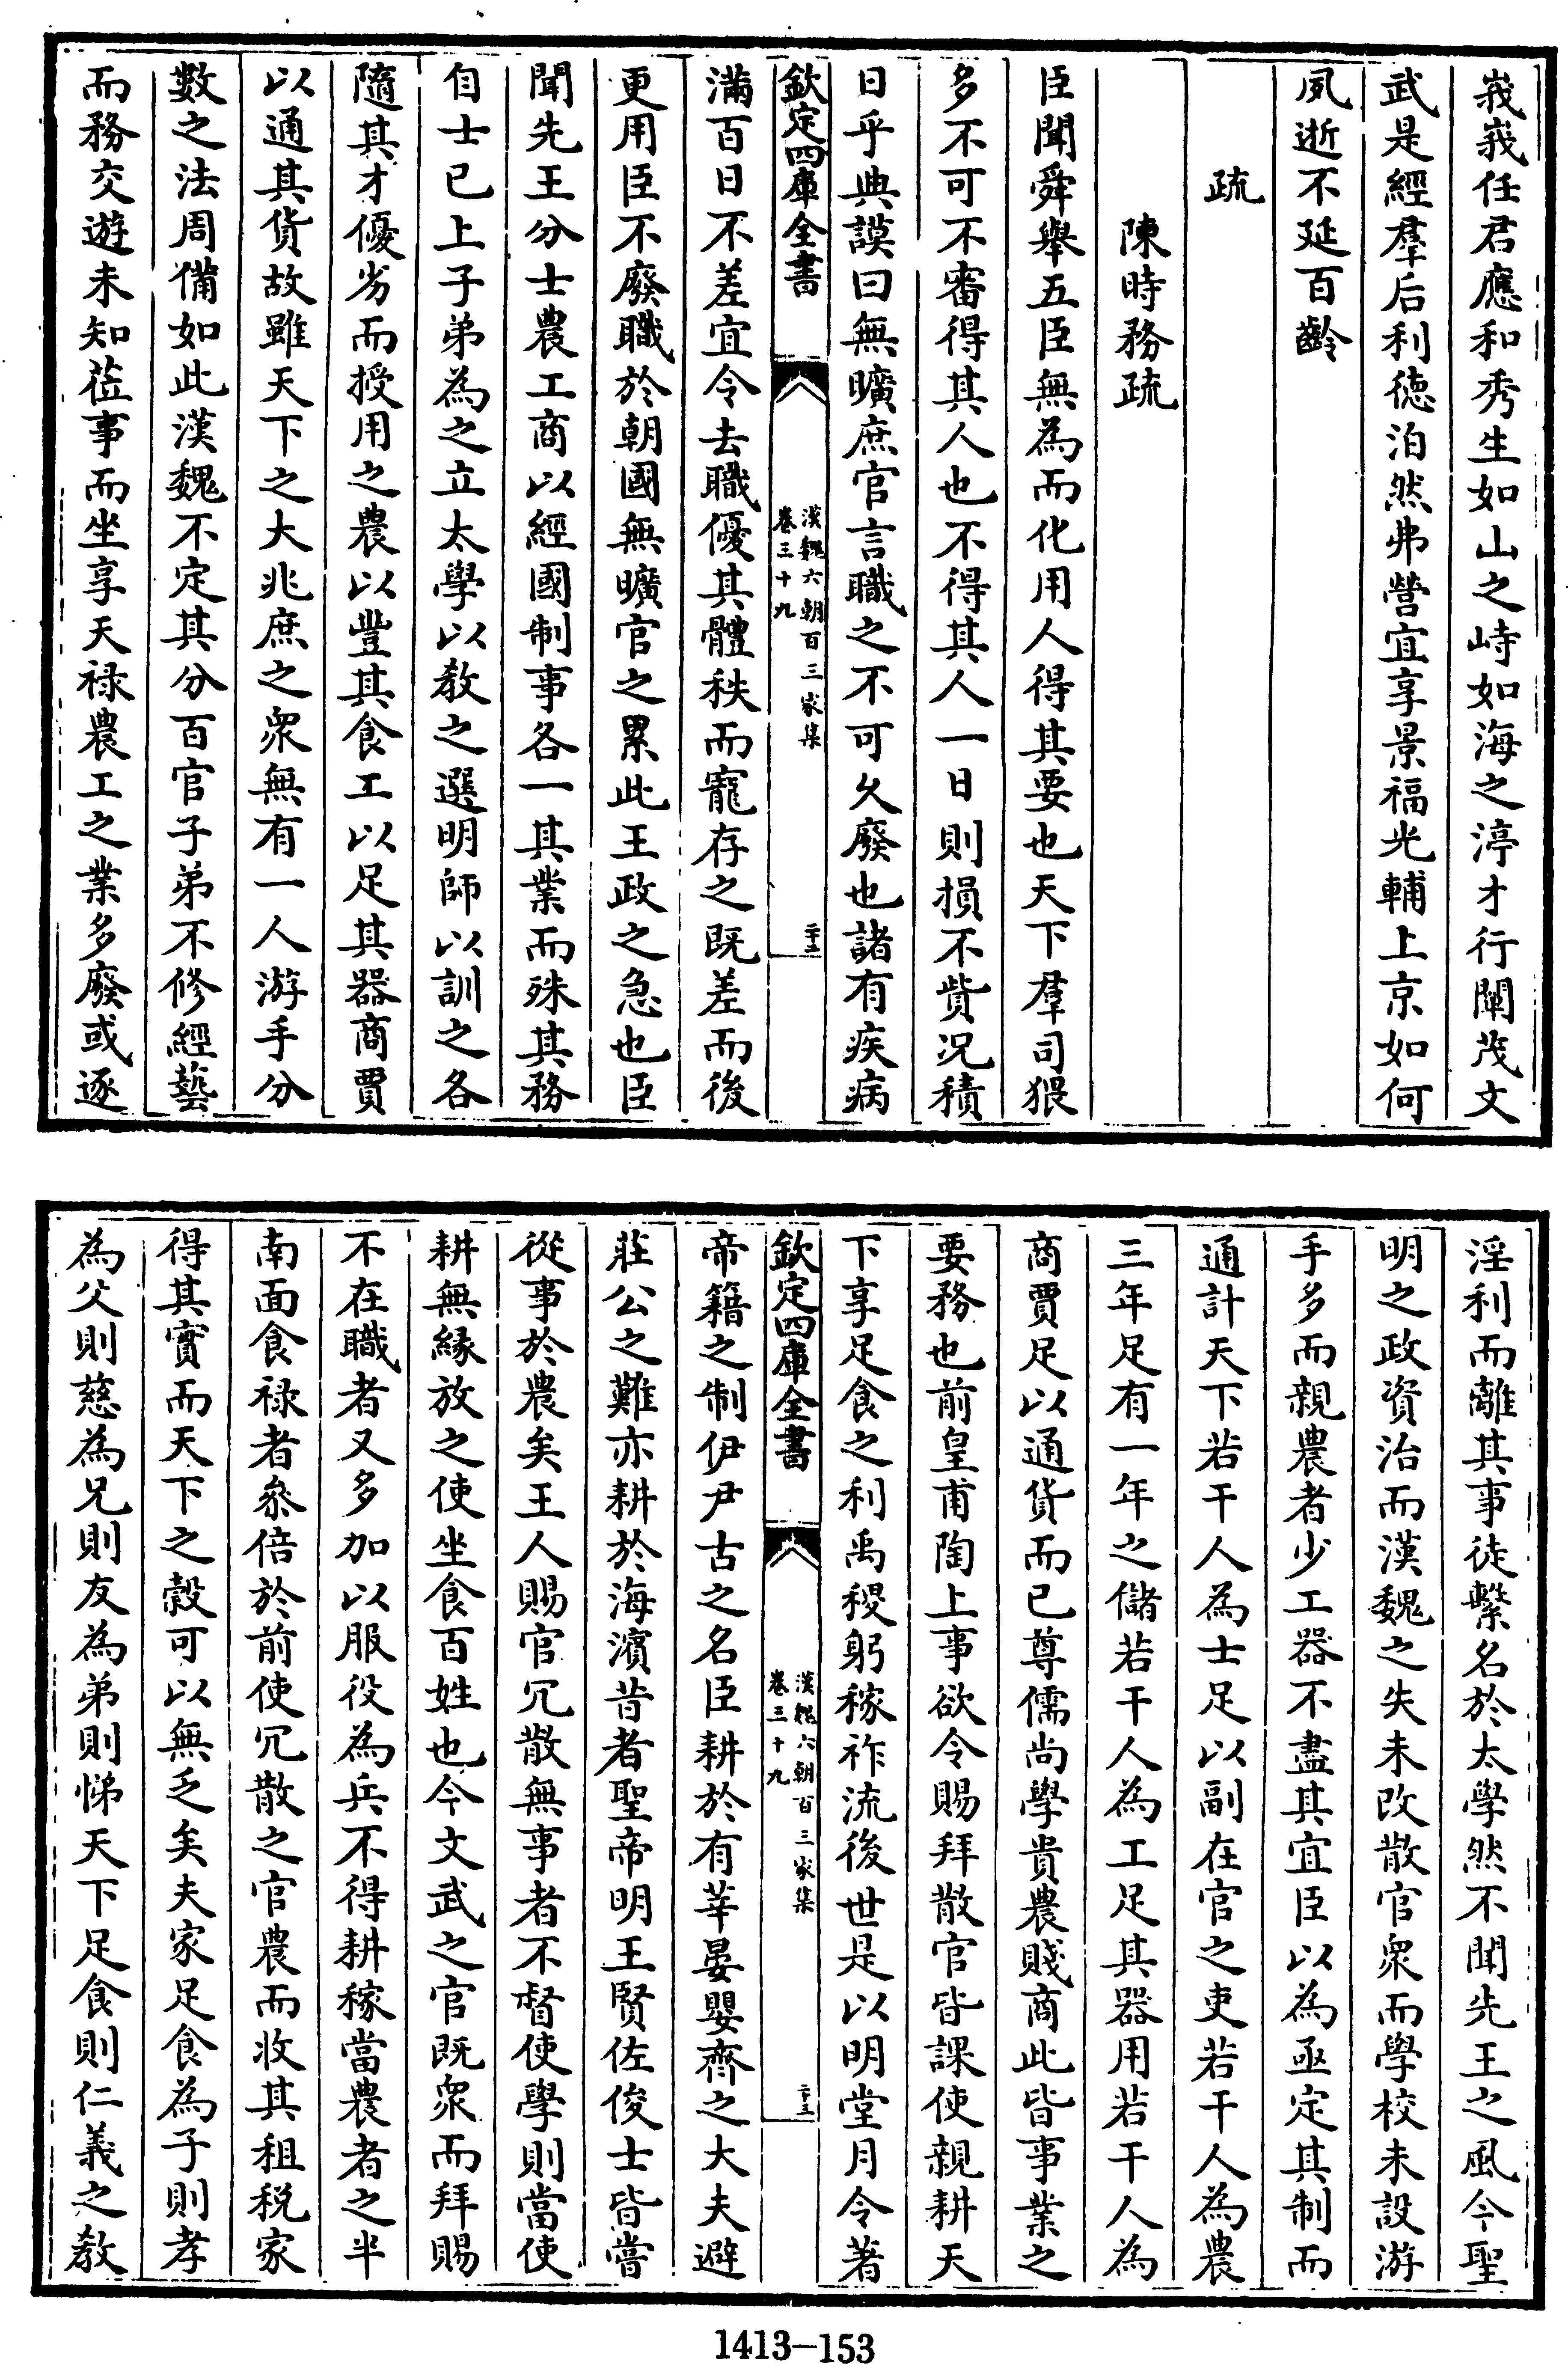 峩峩任君應和秀生如山之峙如海之渟才行闡茂文
武是經羣后利德泊然弗營宜享景福光輔上京如何
夙逝不延百齡
疏
陳時務疏
臣聞舜舉五臣無為而化用人得其要也天下羣司猥
多不可不審得其人也不得其人一日則損不貲况積
日乎典謨曰無曠庶官言職之不可久廢也諸有疾病
欽定四庫全書
漢魏六朝百三家集
卷三十九
二十二
滿百日不差宜令去職優其體秩而寵存之既差而後
更用臣不廢職於朝國無曠官之累此王政之急也臣
聞先王分士農工商以經國制事各一其業而殊其務
自士已上子弟為之立太學以教之選明師以訓之各
隨其才優劣而授用之農以豐其食工以足其器商賈
以通其貨故雖天下之大兆庶之衆無有一人游手分
數之法周備如此漢魏不定其分百官子弟不修經藝
而務交遊未知莅事而坐享天禄農工之業多廢或逐
淫利而離其事徒繫名於太學然不聞先王之風今聖
明之政資治而漢魏之失未改散官衆而學校未設游
手多而親農者少工器不盡其宜臣以為亟定其制而
通計天下若干人為士足以副在官之吏若干人為農
三年足有一年之儲若干人為工足其器用若干人為
商賈足以通貨而已尊儒尚學貴農賤商此皆事業之
要務也前皇甫陶上事欲令賜拜散官皆課使親耕天
下享足食之利禹稷躬稼祚流後世是以明堂月令著
欽定四庫全書
漢魏六朝百三家集
卷三十九
二十三
帝籍之制伊尹古之名臣耕於有莘晏嬰齊之大夫避
莊公之難亦耕於海濱昔者聖帝明王賢佐俊士皆嘗
從事於農矣王人賜官冗散無事者不督使學則當使
耕無緣放之使坐食百姓也今文武之官既衆而拜賜
不在職者又多加以服役為兵不得耕稼當農者之半
南面食禄者叅倍於前使冗散之官農而收其租税家
得其實而天下之穀可以無乏矣夫家足食為子則孝
為父則慈為兄則友為弟則悌天下足食則仁義之教
1413—153